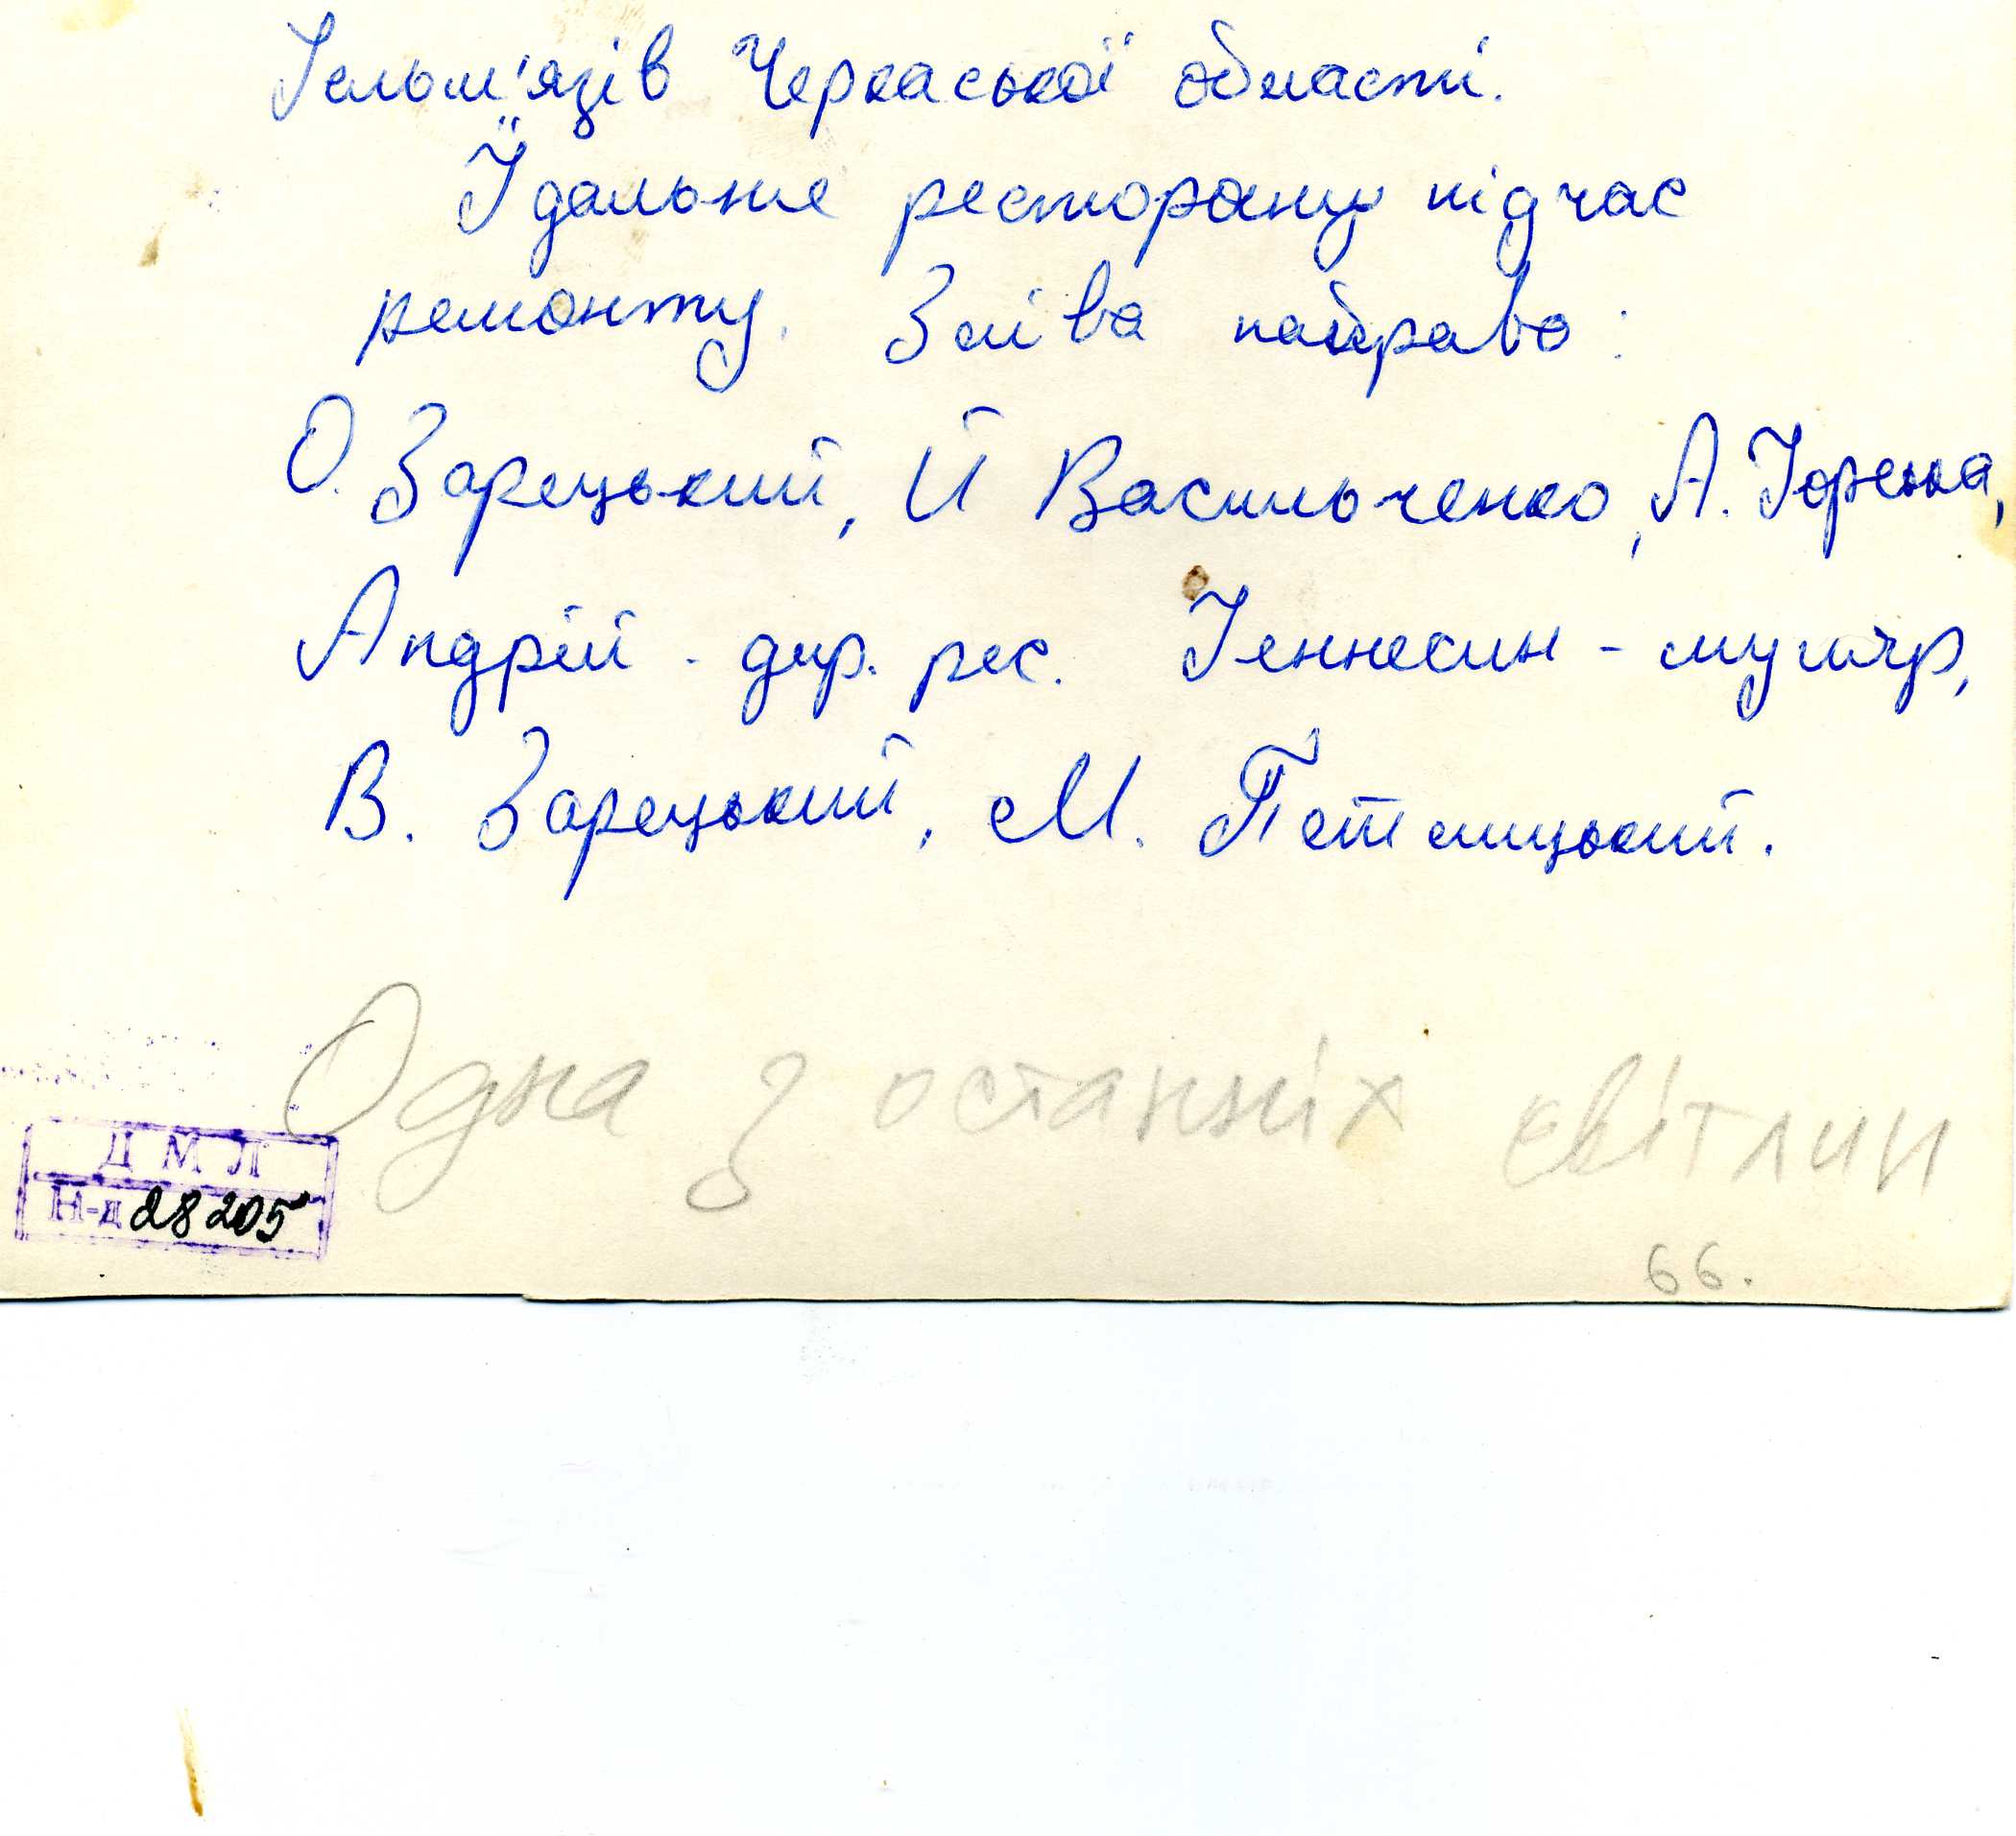 Гельм'язів Черкаської області.
Їдальне ресторану під час
ремонту. Зліва направо:
О. Зарецький, Й Васильченко, А. Горська,
Андрій - дир. рес. Геннесин - муляр,
В. Зарецький, М. Плитицький.
Одна з останніх світлин
Д М Л
Н-д 28205
66.